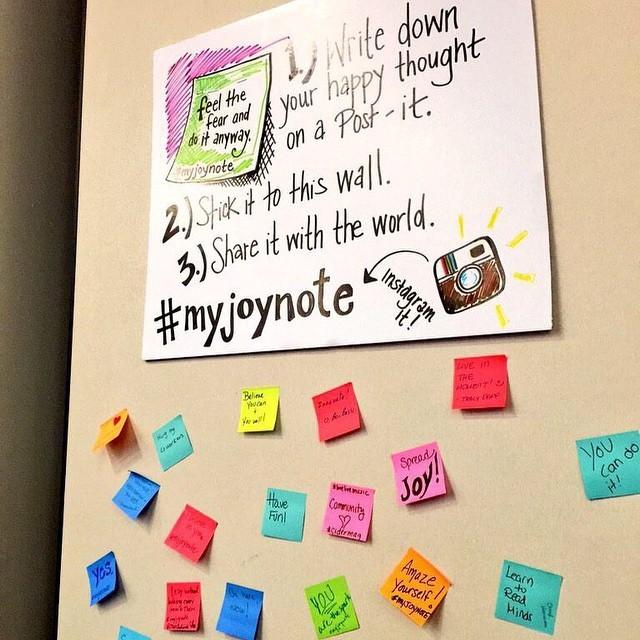 1.) Write down
your happy thought
on a Post-it.
feel the
fear and
do it anyway.
#myjoynote
2.) Stick it to this wall.
3.) Share it with the world.
#myjoynote
Instagram
It!
LIVE IN
THE
MOMENT!
Believe
you can +
You will!
Hug my
Spread
Joy!
YOU
can do
it!
Have
Fun!
Community
Yes.
Amaze
Yourself.
#myjoynote
Learn
to
Read
Minds
YOU
are the